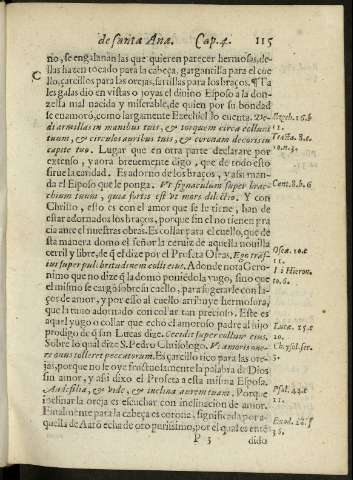 de santa Ana. Cap. 4. 115
no, se engalanan las que quieren parecer hermosas, de-
llas hazen tocado para la cabeça, gargantilla para el cue
C llo, çarcillos para las orejas, sartillas para los braços. ¶ Ta
les galas dio en vistas o joyas el diuino Esposo a la don-
zella mal nacida y miserable, de quien por su bondad
se enamorò, como largamente Ezechiel lo cuenta. De-
di armillas in manibus tuis, & torquem circa collum
tuum, & circulos auribus tuis, & coronam decoris in
capite tuo. Lugar que en otra parte declarare por
extenso, y aora breuemente digo, que de todo esto
sirue la caridad. Es adorno de los braços, y assi man-
da el Esposo que le ponga. Vt signaculum super brac
chium tuum, quia fortis est vt mors dilectio. Y con
Chrillo, esto es con el amor que se le tiene, han de
estar adornados los braços, porque sin el no tienen pre
cia ante el nuestras obras. Es collar para el cuello, que de
sta manera domo el señor la ceruiz de aquella nouilla
cerril y libre, de q̃ el dize por el Profeta Oseas, Ego trãs
iui super pulchritudinem colli eius. Adonde nota Gero-
nimo que no dize q̃ la domò poniẽdola yugo, sino que
el mismo se cargò sobre su cuello, para sugetarle con la-
ços de amor, y por esso al cuello atribuye hermosura,
que la tuuo adornado con collar tan precioso. Este es
aquel yugo o collar que echò el amoroso padre al hijo
prodigo de q̃ san Lucas dize. Cecidit super collum eius.
Sobre lo qual dize S. Pedro Chrisologo. Vt amoris one-
re onus tolleret peccatorum. Es çarcillo rico para las ore-
jas, porque no le oye fructuosamente la palabra de Dios
sin amor, y assi dixo el Profeta a esta misma Esposa.
Audi filia, & vide, & inclina aurem tuam. Porque
inclinar la oreja es escuchar con inclinacion de amor.
Finalmente para la cabeça es corona, significada por a-
quella de Aarõ echa de oro purissimo, por el qual es entẽ
P 3 dido
Ezech. 16. b
11.
Tracta. 8. c.
10. n. 3.
Cant. 8. b. 6
Oseæ. 10. c
11.
Hieron.
to. 6.
Lucæ. 15. c
20.
Chrysol. ser.
3.
Psal. 44. c
11.
Exod. 28. f
36.